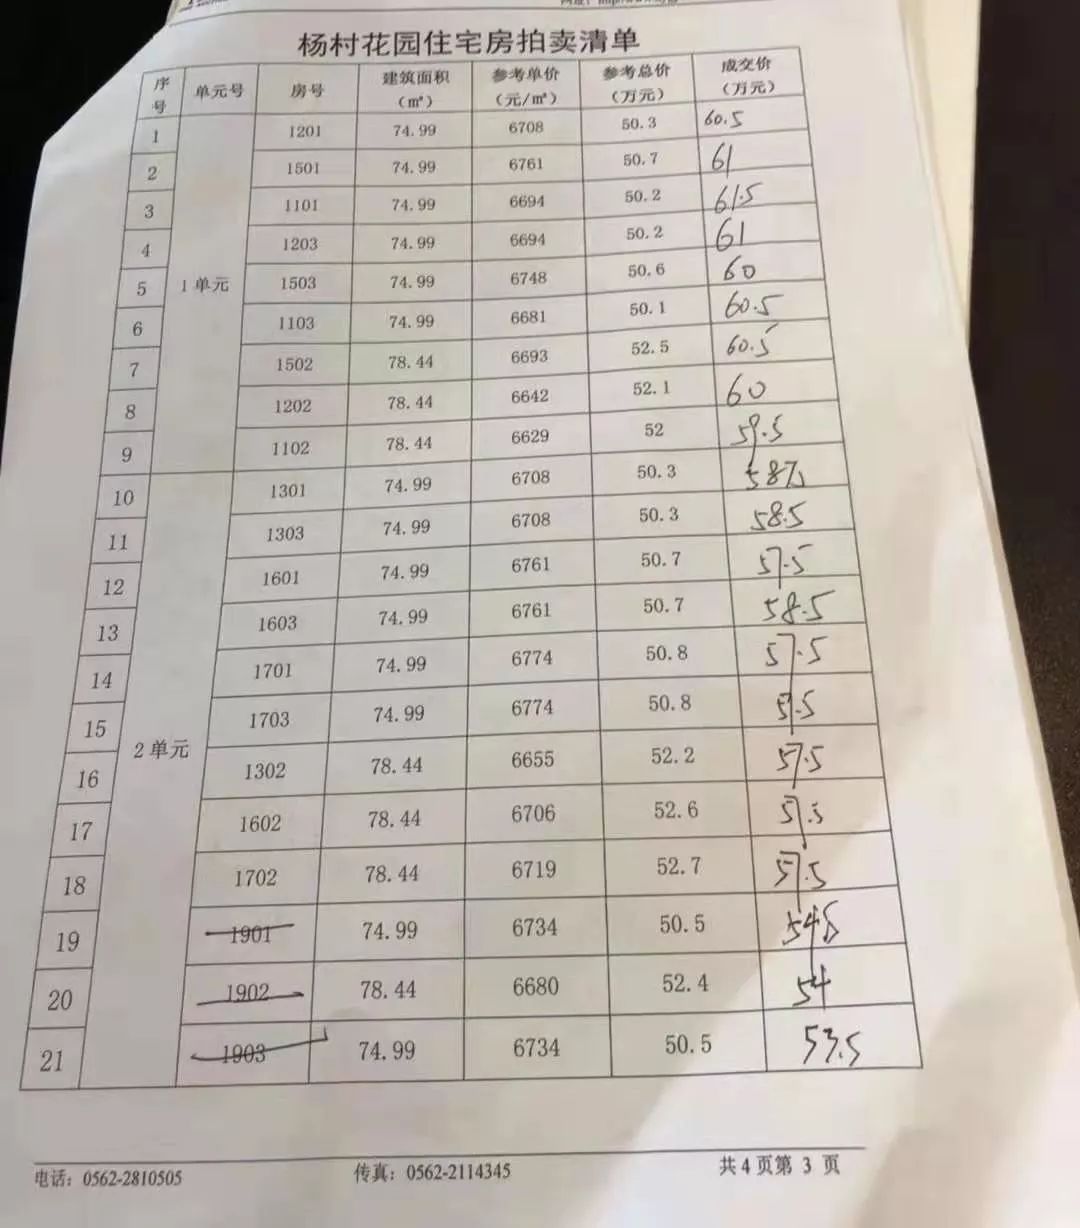 杨村花园住宅房拍卖清单
序号 单元号 房号 建筑面积(㎡) 参考单价(元/㎡) 参考总价(万元) 成交价(万元)
1 1201 74.99 6708 50.3 60.5
2 1501 74.99 6761 50.7 61
3 1101 74.99 6694 50.2 61.5
4 1203 74.99 6694 50.2 61
5 1单元 1503 74.99 6748 50.6 60
6 1103 74.99 6681 50.1 60.5
7 1502 78.44 6693 52.5 60.5
8 1202 78.44 6642 52.1 60
9 1102 78.44 6629 52 59.5
10 1301 74.99 6708 50.3
11 1303 74.99 6708 50.3 58.5
12 1601 74.99 6761 50.7 57.5
13 1603 74.99 6761 50.7 58.5
14 1701 74.99 6774 50.8 57.5
15 1703 74.99 6774 50.8 57.5
16 2单元 1302 78.44 6655 52.2 57.5
17 1602 78.44 6706 52.6 57.5
18 1702 78.44 6719 52.7 57.5
19 1901 74.99 6734 50.5
20 1902 78.44 6680 52.4 54
21 1903 74.99 6734 50.5 53.5
电话：0562-2810505 传真：0562-2114345 共4页第 3 页